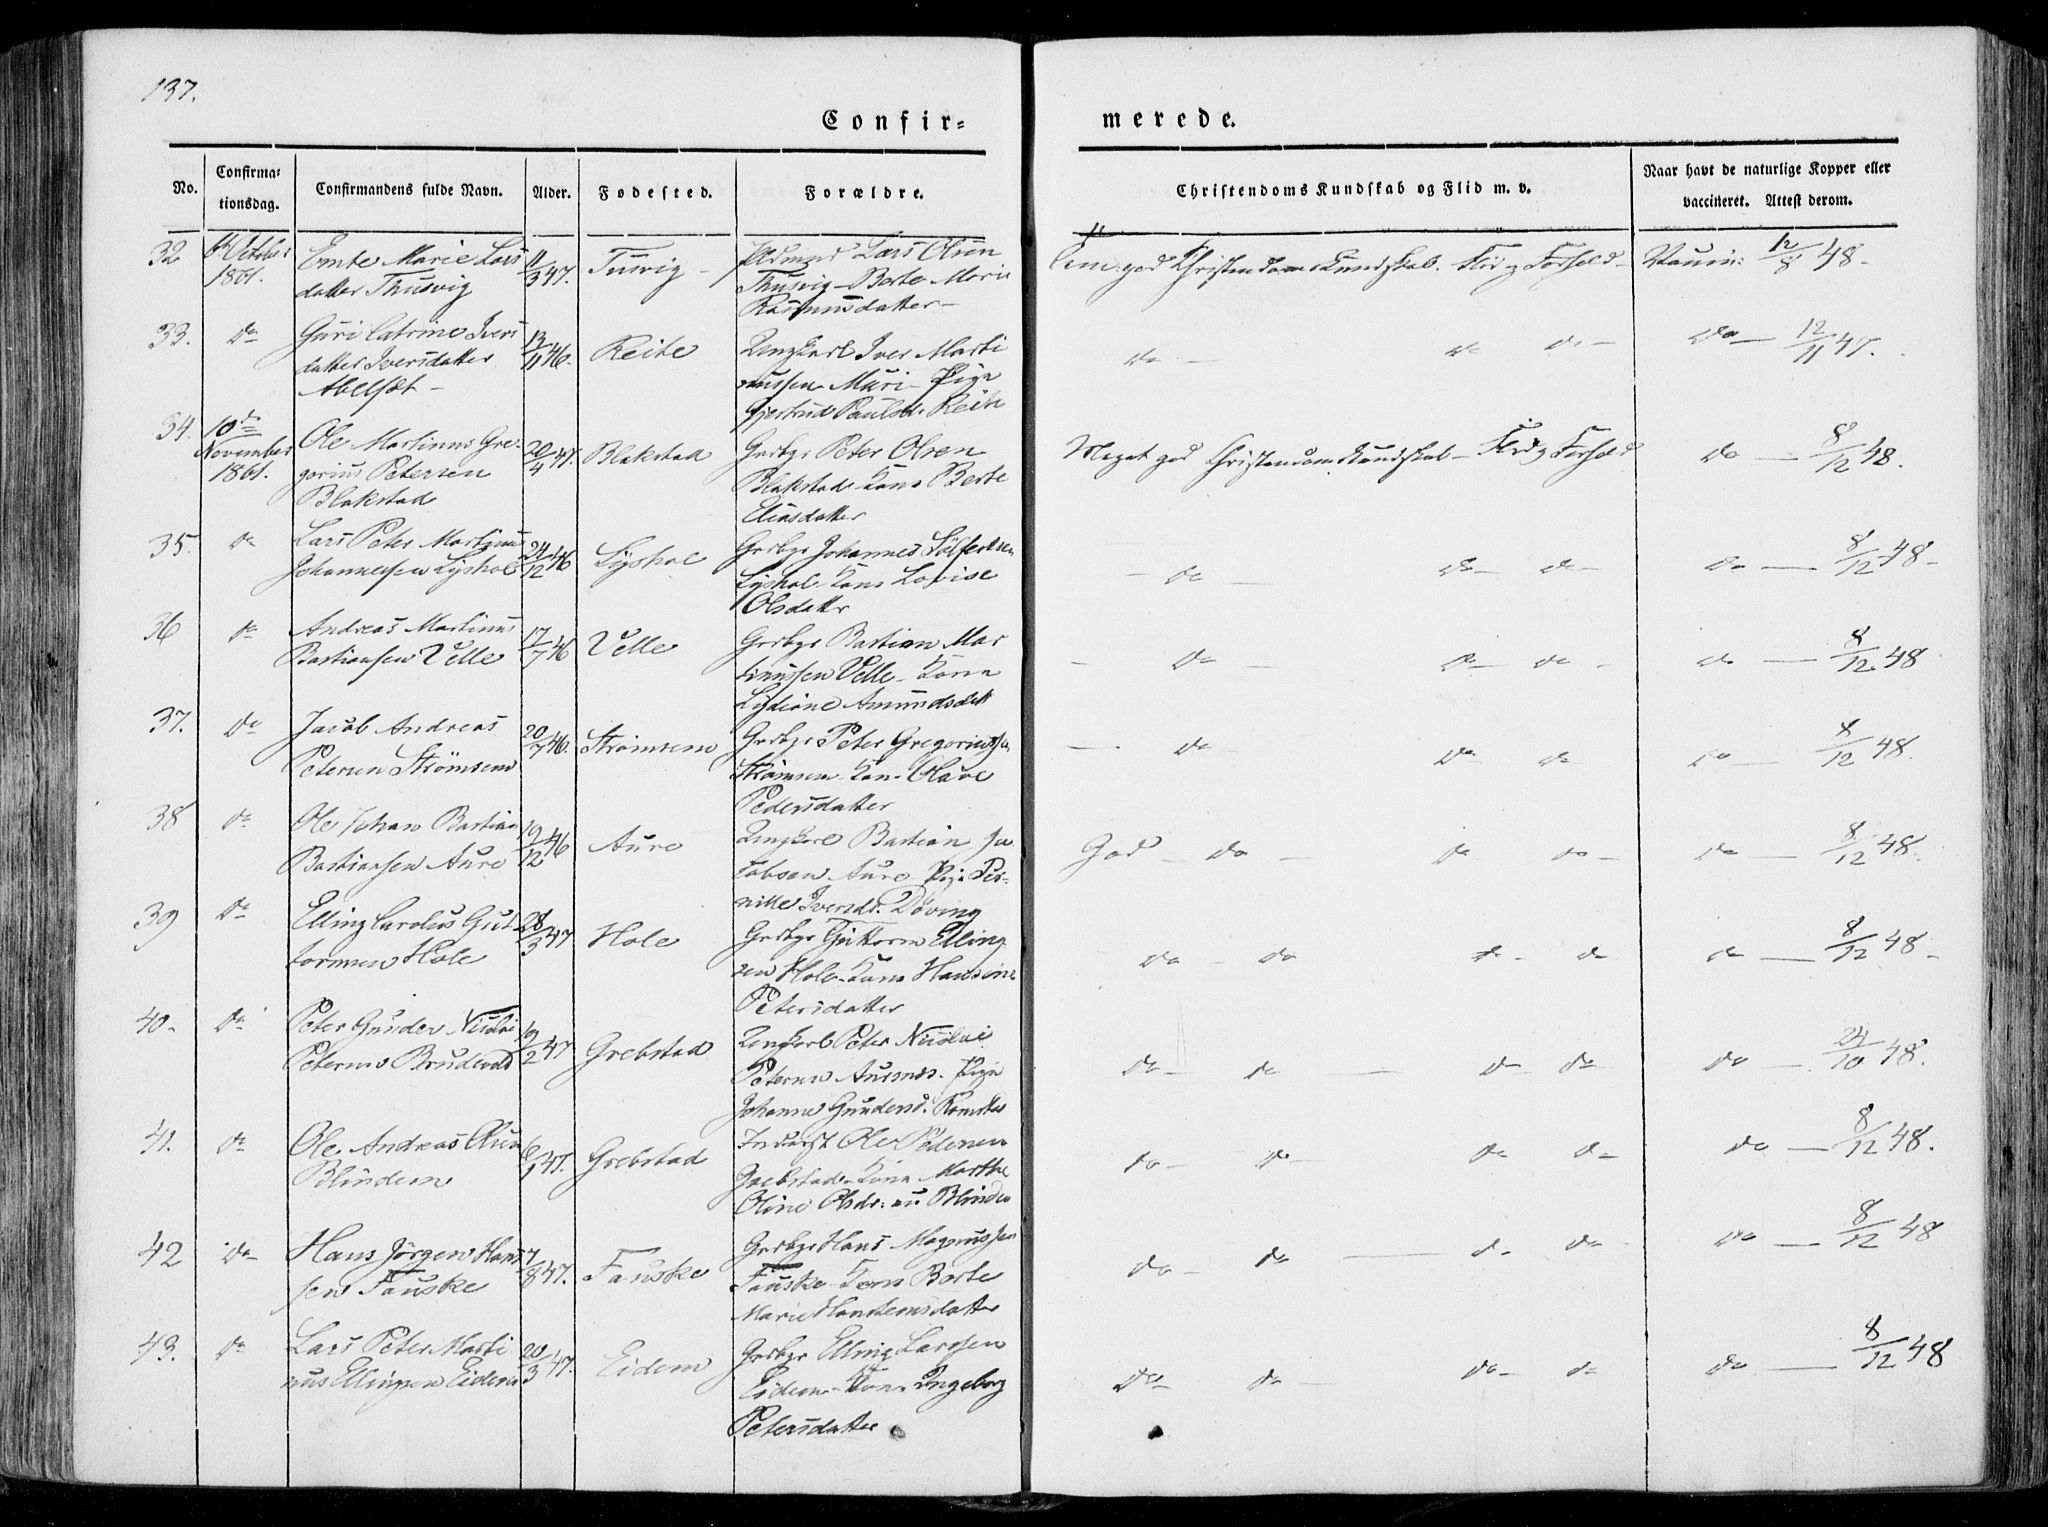 137.
Confir-
merede.
No.
Confirma-
tionsdag.
Confirmandens fulde Navn.
Alder.
Fødested.
Forældre.
Christendoms Kundskab og Flid m. v.
Naar havt de naturlige Kopper eller
vaccineret. Attest derom.
32
October
1861.
Marie Lars
datter Thusvig
11/3 47.
Tusvig
Lars Olsen
Thusvig - Berte Marie
Rasmusdatter -
god Christendoms Kundskab. Flid og Forhold -
Vaccin: 12/8 48 -
33.
do
Guri Catrine Ivers
datter Iversdatter
Abelset -
13/11 46.
Reite
Ungkarl Iver Marti
nussen Muri - Pige
Gjertrud Paulsd. Reite
do -
do
do -
do - 12/11 47.
34.
10de
November
1861.
Ole Martinus Gre-
gorius Petersen
Blakstad
20/4 47.
Blakstad
Grdbr Peter Olsen
Blakstad - Kone Berte
Eliasdatter
Meget god Christendoms Kundskab - Flid og Forhold
do - 8/12 48.
35.
do
Lars Peter Martinus
Johannessen Lyshol
24/12 46
Lyshol
Grdbr Johannes
Lyshol - Kone Lovise
Olsdattr
- do -
do -
do -
do - 8/12 48 -
36
do
Andreas Martinus
Bastiansen Velle
17/7 46
Velle
Grdbr Bastian Mar
tinussen Velle - Kone
Lydiane Amundsdatt
- do -
do -
do -
do - 8/12 48
37.
do
Jacob Andreas
Petersen Strømsem
20/7 46.
Strømsem
Grdbr Peter Gregoriussen
Strømsem - Kone Olave
Pedersdatter
- do -
do
do -
do - 8/12 48.
38
do
Ole Johan Bastian
Bastiansen Aure
19/12 46
Aure
Ungkarl Bastian Ja
kobsen Aure - Pige Per-
nille Iversdr. Døving
God - do -
do
do -
do - 8/12 48.
39
do
Elling Carolus Gut
tormsen Hole
28/3 47
Hole
Grdbr Guttorm Elling
sen Hole - Kone Hansine
Petersdatter
do - do
do -
do
do - 8/12 48 -
40 -
do
Peter Gunder Nicolai
Petersen
19/2 47
Grebstad
Ungkarl Peter Nicolai
Petersen Aursnes. Pige
Johanne Gundersd.
do - do -
do -
do -
do - 24/10 48.
41.
do
Ole Andreas Olsen
Blindem
6/1 47.
Grebstad
Inderst Ole Pedersen
Grebstad - Kone Marthe
Oline Olsdr: Blindem
do - do -
do
do -
do - 8/12 48.
42
do
Hans Jørgen Hans
sen Fauske
7/8 47.
Fauske
Grdbr Hans Magnussen
Fauske - Kone Berte
Marie
do - do -
do -
do -
do - 8/12 48
43.
do
Lars Peter Marti
nus Ellingsen Eidem
20/3 47.
Eidem
Grdbr Elling Larssen
Eidem - Kone Ingeborg
Petersdatter
do - do -
do -
do -
do - 8/12 48